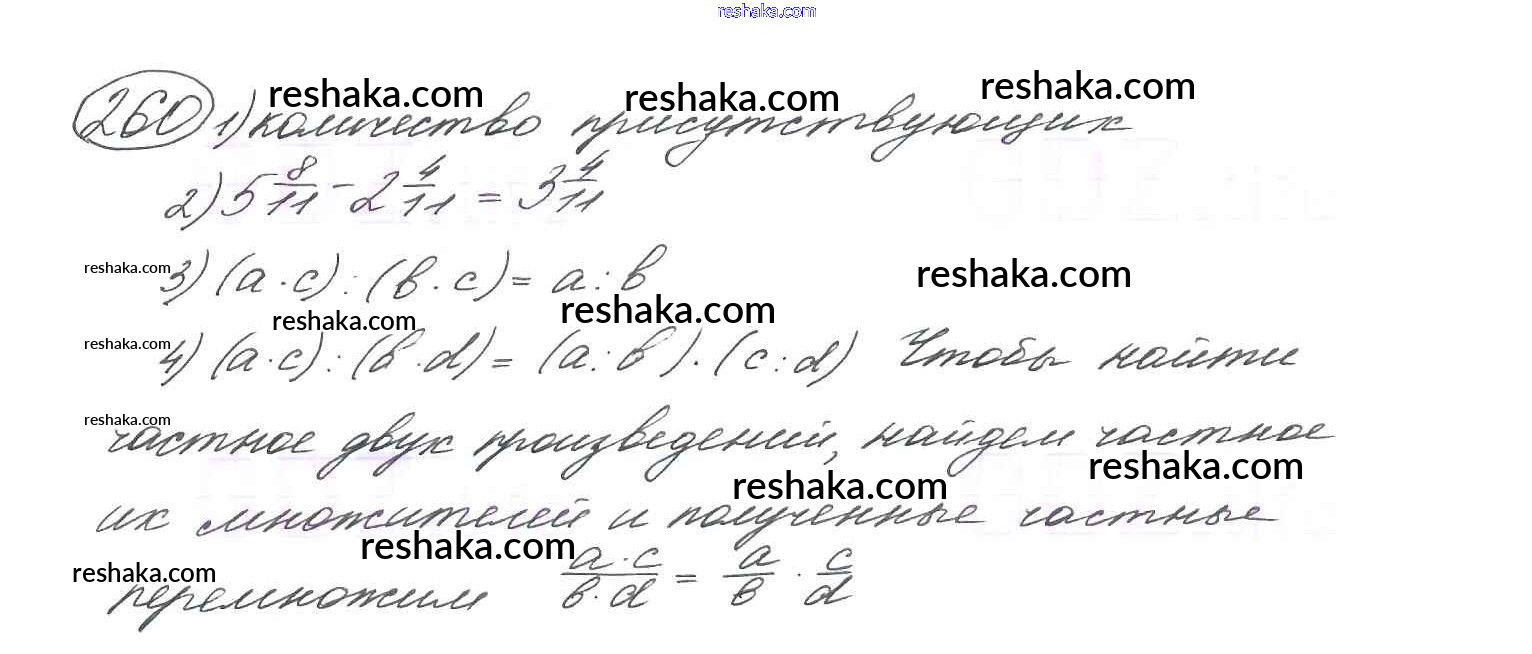 reshaka.com
260 1) количество присутствующих
reshaka.com reshaka.com reshaka.com
2) 5 8/11 - 2 4/11 = 3 4/11
3) (a · c) : (b · c) = a : b
reshaka.com reshaka.com
reshaka.com reshaka.com
4) (a · c) : (b · d) = (a : b) · (c : d) Чтобы найти
reshaka.com
частное двух произведений, найдем частное
reshaka.com
reshaka.com reshaka.com
их множителей и полученные частные
reshaka.com
перемножим (a · c)/(b · d) = a/b · c/d
reshaka.com